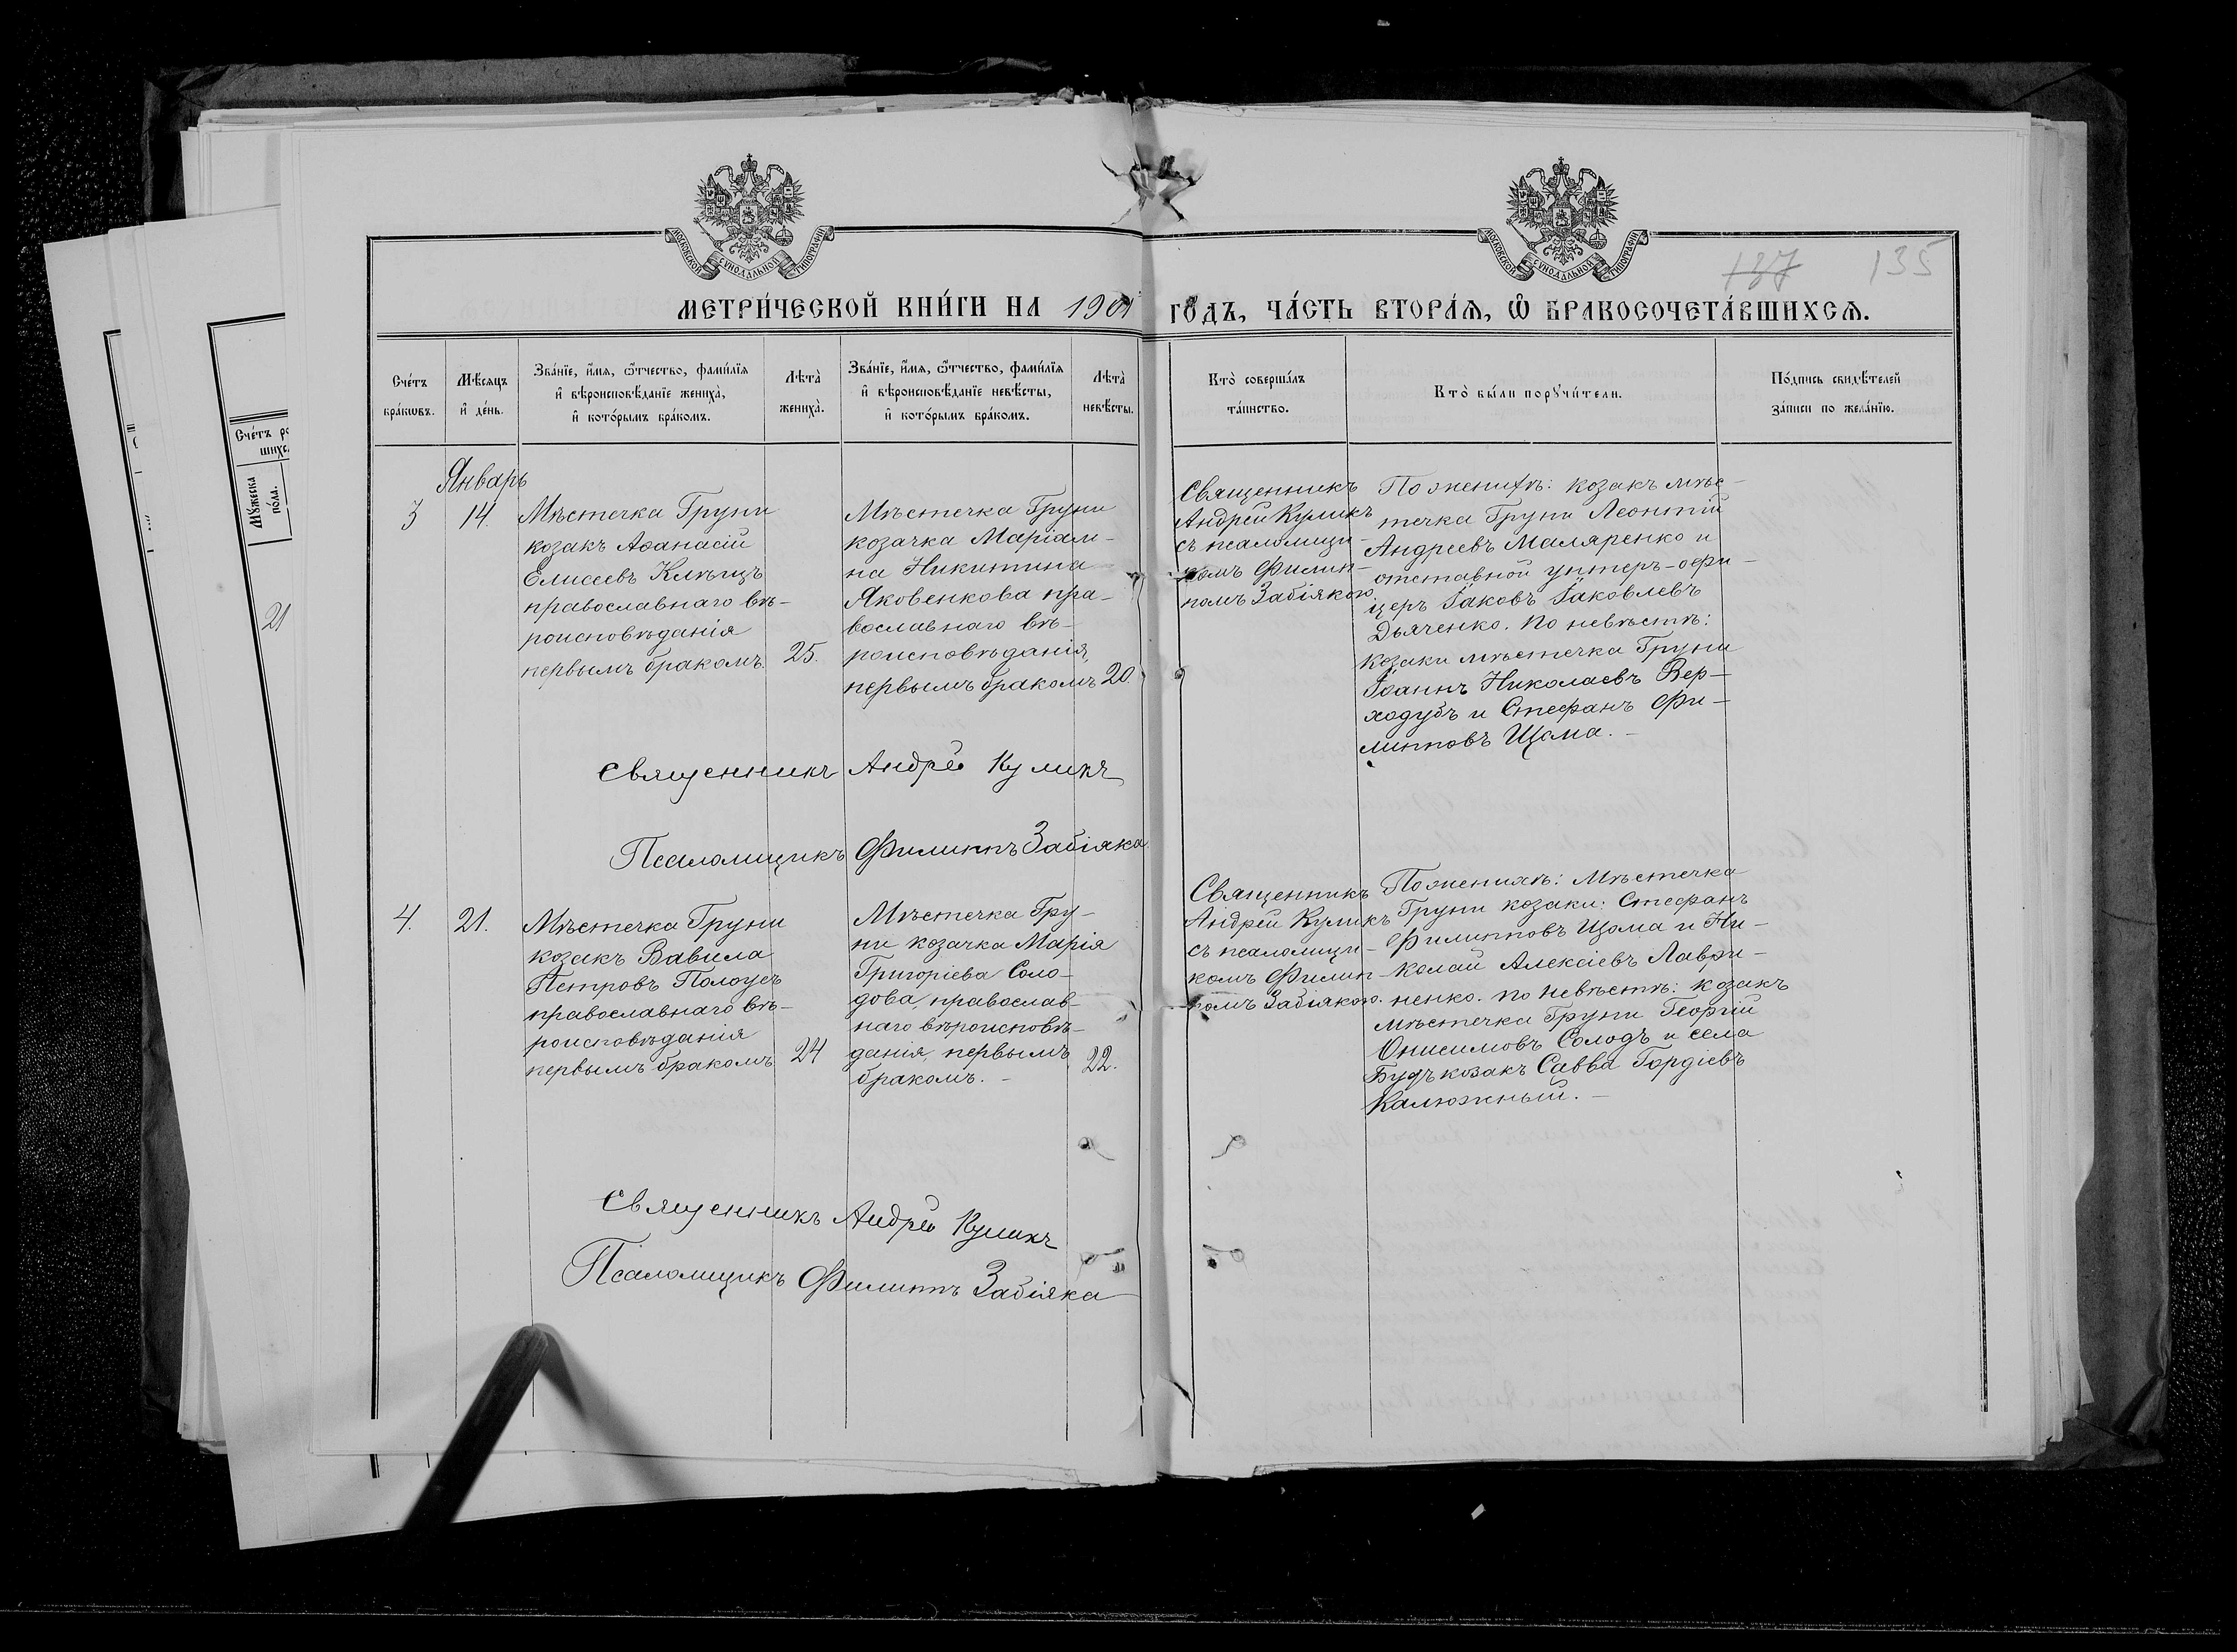 МОСКОВСКОЙ СУНОДАЛЬНОЙ ТИПОГРАФІИ
МОСКОВСКОЙ СУНОДАЛЬНОЙ ТИПОГРАФІИ
137 135
МЕТРИ́ЧЕСКОЙ КНИ́ГИ НА 1901 ГО́ДЪ, ЧА́СТЬ ВТОРА́Я, Ѡ҆ БРАКОСОЧЕТА́ВШИХСЯ.
Сче́тъ
бра́кѡвъ.
Мѣ́сяцъ
и҆ де́нь.
Зва́нїе, и҆́мя, ѻ҆́тчество, фами́лїя
и҆ вѣроисповѣ́данїе жениха̀,
и҆ кото́рымъ бра́комъ.
Лѣта̀
жениха̀.
Зва́нїе, и҆́мя, ѻ҆́тчество, фами́лїя
и҆ вѣроисповѣ́данїе невѣ́сты,
и҆ кото́рымъ бра́комъ.
Лѣта̀
невѣ́сты.
Кто̀ соверша́лъ
та́инство.
Кто̀ бы́ли порꙋчи́тели.
По́дпись свидѣ́телей
за́писи по жела́нїю.
Сче́тъ
Мꙋ́жеска
по́ла.
21
Январь
3
14.
Мѣстечка Груни
козакъ Аѳанасій
Елисеевъ Клѣщъ
православнаго вѣ-
роисповѣданія
первымъ бракомъ.
25.
Мѣстечка Груни
козачка Маріам-
на Никитина
Яковенкова пра-
вославнаго вѣ-
роисповѣданія,
первымъ бракомъ
20.
Священникъ
Андрей Куликъ
съ псаломщи-
комъ Филип-
помъ Забіякою
По женихѣ: козакъ мѣс-
течка Груни Леонтій
Андреевъ Маляренко и
отставной унтеръ-офи-
церъ Іаковъ Іаковлевъ
Дьяченко. По невѣстѣ:
козаки мѣстечка Груни
Іоаннъ Николаевъ Вер-
ходубъ и Стефанъ Фи-
липповъ Щома. -
Священникъ Андрей Куликъ
Псаломщикъ Филиппъ Забіяка
4.
21.
Мѣстечка Груни
козакъ Вавила
Петровъ Полоусъ
православнаго вѣ-
роисповѣданія
первымъ бракомъ
24
Мѣстечка Гру-
ни козачка Марія
Григоріева Соло-
дова, православ-
наго вѣроисповѣ-
данія, первымъ
бракомъ. -
22.
Священникъ
Андрей Куликъ
съ псаломщи-
комъ Филип-
помъ Забіякою.
По женихѣ: Мѣстечка
Груни козаки: Стефанъ
Филипповъ Щома и Ни-
колай Алексіевъ Лаври-
ненко. По невѣстѣ: козакъ
мѣстечка Груни Георгій
Онисимовъ Солодъ и села
Будъ козакъ Савва Гордіевъ
Калюжный. -
Священникъ Андрей Куликъ
Псаломщикъ Филиппъ Забіяка